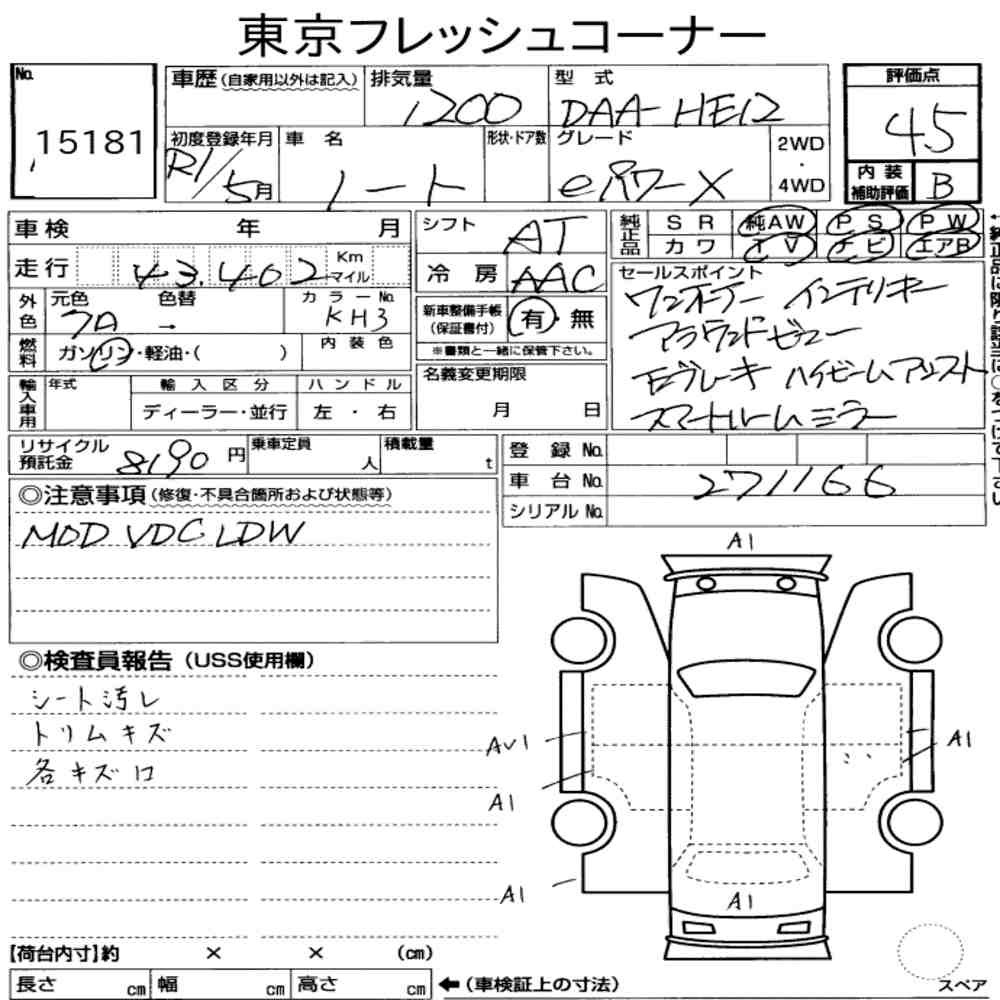 東京フレッシュコーナー
No. 15181
車歴(自家用以外は記入)
排気量 1200
型式 DAA-HE12
評価点 45
初度登録年月 R1/5月
車名 ノート
形状・ドア数
グレード eパワーX
2WD・4WD
内装補助評価 B
車検 年 月
走行 43.402 Km マイル
外色 元色 7A 色替 → カラーNo. KH3
燃料 ガソリン・軽油・( ) 内装色
輸入車用 年式 輸入区分 ハンドル
ディーラー・並行 左・右
リサイクル預託金 8190円
乗車定員 人
積載量 t
シフト AT
冷房 AAC
新車整備手帳(保証書付) 有・無
※書類と一緒に保管下さい。
名義変更期限
月 日
純正品 SR 純AW PS PW
カワ TV ナビ エアB
セールスポイント
ワンオーナー インテリキー
アラウンドビュー
エマブレーキ ハイビームアシスト
スマートルームミラー
登録No.
車台No. 271166
シリアルNo.
◎注意事項(修復・不具合箇所および状態等)
MOD VDC LDW
◎検査員報告(USS使用欄)
シート汚レ
トリムキズ
各キズ口
A1
AU1
A1
A1
A1
A1
【荷台内寸】約 × × (cm)
長さ cm 幅 cm 高さ cm ←(車検証上の寸法)
スペア